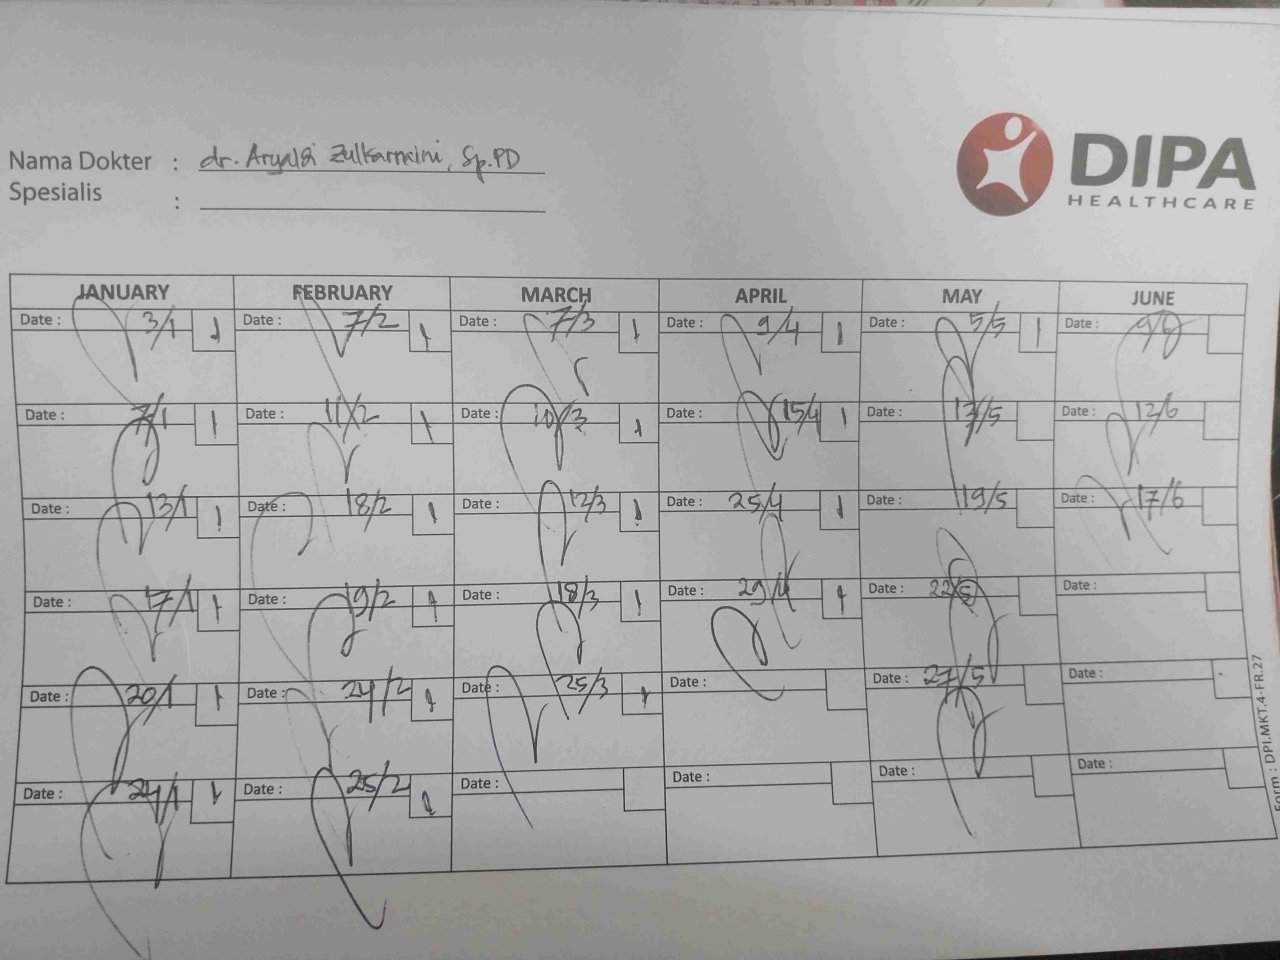 DIPA
HEALTHCARE
Nama Dokter : dr. Aryaldi Zulkarnaini, Sp.PD
Spesialis :
JANUARY FEBRUARY MARCH APRIL MAY JUNE
Date : 3/1 1 Date : 7/2 1 Date : 7/3 1 Date : 9/4 1 Date : 5/5 1 Date : 9/6
Date : 7/1 1 Date : 11/2 1 Date : 10/3 1 Date : 15/4 1 Date : 13/5 Date : 12/6
Date : 13/1 1 Date : 18/2 1 Date : 12/3 1 Date : 25/4 1 Date : 19/5 Date : 17/6
Date : 17/1 1 Date : 19/2 1 Date : 18/3 1 Date : 29/4 1 Date : 22/5 Date :
Date : 20/1 1 Date : 24/2 1 Date : 25/3 1 Date : Date : 27/5 Date :
Date : 24/1 1 Date : 25/2 1 Date : Date : Date : Date :
Form : DPI.MKT.4-FR.27